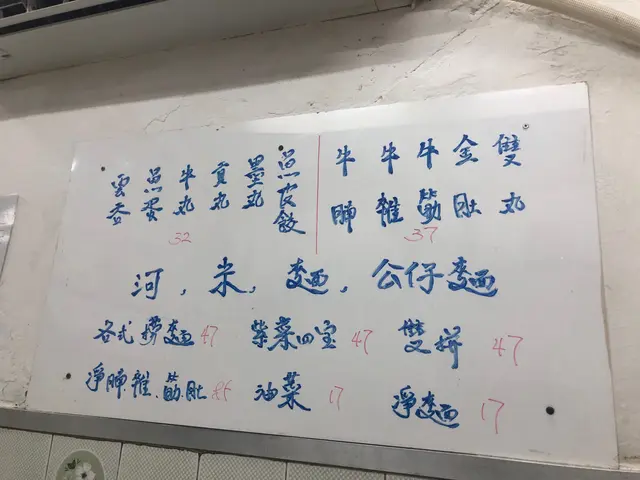 雙丸
金肚
牛筋
牛雜
牛腩
37
魚皮餃
墨丸
貢丸
牛丸
魚蛋
雲吞
32
河，米，麵，公仔麵
各式撈麵 47 紫菜四宝 47 雙拼 47
淨腩.雜.筋.肚 油菜 17 淨麵 17